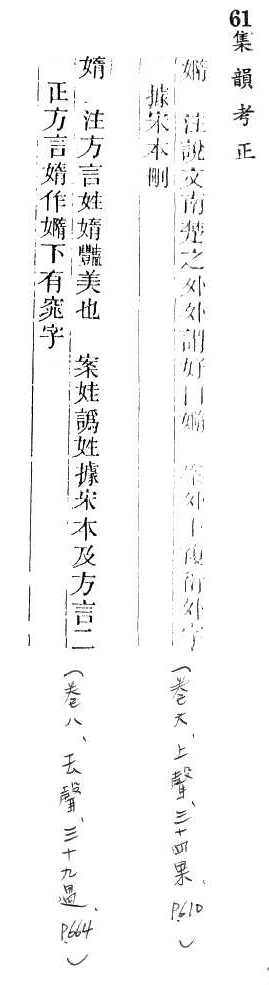 61
集韻考正
嫷 注說文南楚之外外謂好曰嫷 案外下復衍外字
據宋本刪
（卷六、上聲、三十四果、P.610）
媠 注方言姓媠豔美也 案娃譌姓據宋本及方言二
正方言媠作嫷下有窕字
（卷八、去聲、三十九過、P.664）